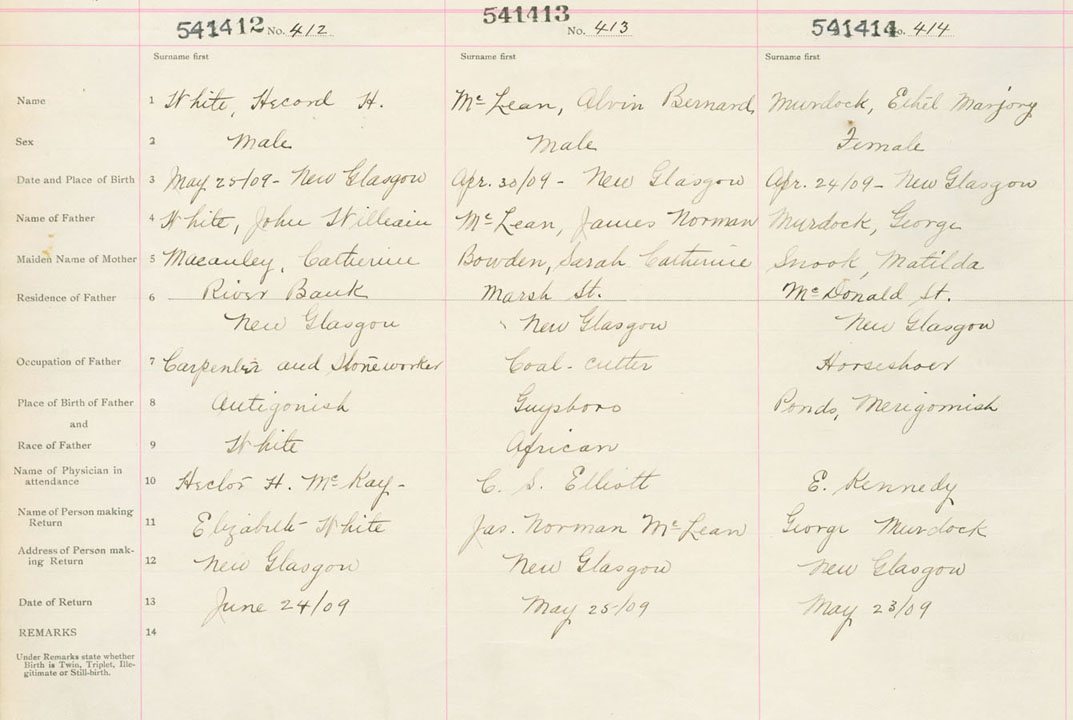 541412 No. 412 541413 No. 413 541414 No. 414
Surname first Surname first Surname first
Name 1 White, Hecord H. McLean, Alvin Bernard Murdock, Ethel Marjory
Sex 2 Male Male Female
Date and Place of Birth 3 May 25/09 - New Glasgow Apr. 30/09 - New Glasgow Apr. 24/09 - New Glasgow
Name of Father 4 White, John William McLean, James Norman Murdock, George
Maiden Name of Mother 5 Macauley, Catherine Bowden, Sarah Catherine Snook, Matilda
Residence of Father 6 River Bank Marsh St. McDonald St.
New Glasgow New Glasgow New Glasgow
Occupation of Father 7 Carpenter and Stoneworker Coal-cutter Horseshoer
Place of Birth of Father 8 Antigonish Guysboro Ponds, Merigomish
and
Race of Father 9 White African
Name of Physician in
attendance 10 Hector H. McKay - C. S. Elliott E. Kennedy
Name of Person making
Return 11 Elizabeth White Jas. Norman McLean George Murdock
Address of Person mak-
ing Return 12 New Glasgow New Glasgow New Glasgow
Date of Return 13 June 24/09 May 25/09 May 23/09
REMARKS 14
Under Remarks state whether
Birth is Twin, Triplet, Ille-
gitimate or Still-birth.